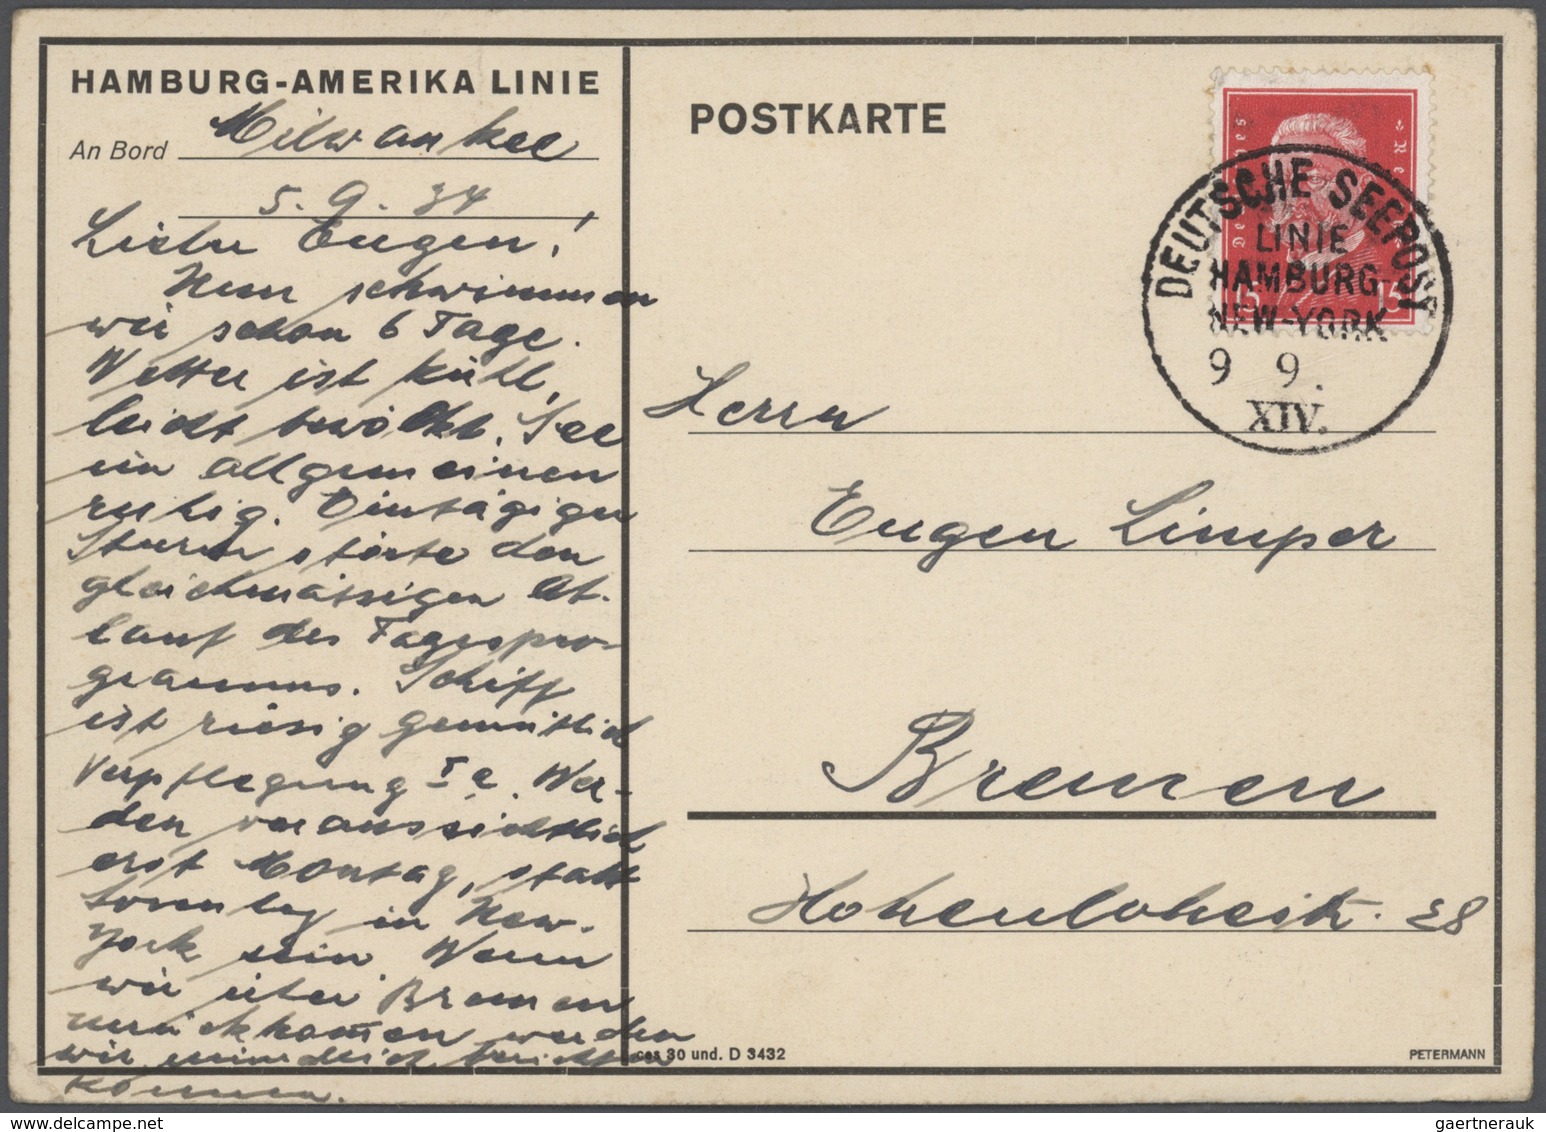 HAMBURG-AMERIKA LINIE
An Bord Milwaukee
5. 9. 34
Lieber Eugen!
Nun schwimmen
wir schon 6 Tage.
Wetter ist kühl,
leicht bewölkt. See
im allgemeinen
ruhig. Eintägiger
Sturm störte den
gleichmässigen Ab-
lauf des Tagespro-
gramms. Schiff
ist riesig gemütlich
Verpflegung Ia. Wer-
den voraussichtlich
erst Montag, statt
Sonntag in New-
york sein. Wenn
wir über Bremen
zurückkommen werden
wir mündlich berichten
können.
POSTKARTE
Deutsches Reich
15 15
DEUTSCHE SEEPOST
LINIE
HAMBURG-
NEW-YORK
9 9.
XIV.
Herrn
Eugen Limper
Bremen
Hohenlohestr. 28
30 und. D 3432
PETERMANN
gaertnerauk @ delcampe.net